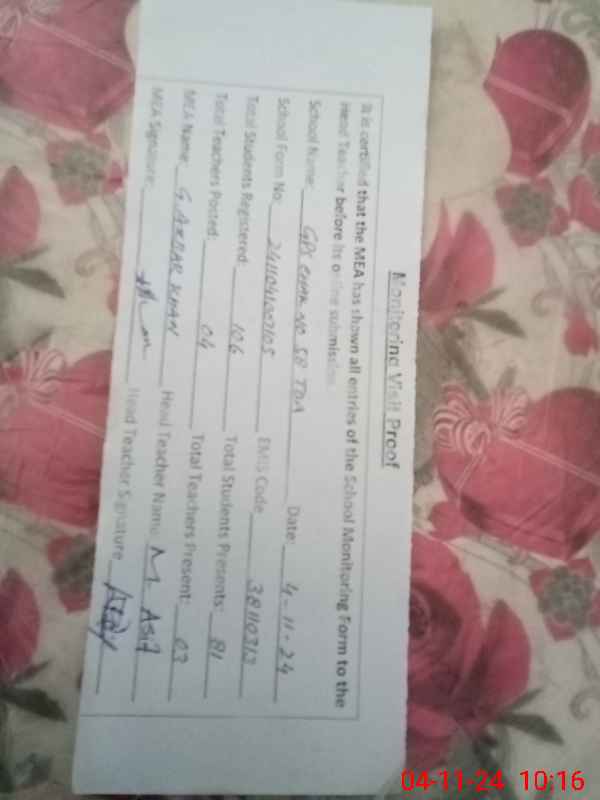 Monitoring Visit Proof
It is certified that the MEA has shown all entries of the School Monitoring Form to the
Head Teacher before its online submission.
School Name: GPS CHAK NO 58 TDA Date: 4-11-24
School Form No: EMIS Code 38110313
Total Students Registered: 106 Total Students Presents: 81
Total Teachers Posted: 04 Total Teachers Present: 03
MEA Name: G AKBAR KHAN Head Teacher Name M. Asif
MEA Signature: Head Teacher Signature
04-11-24 10:16